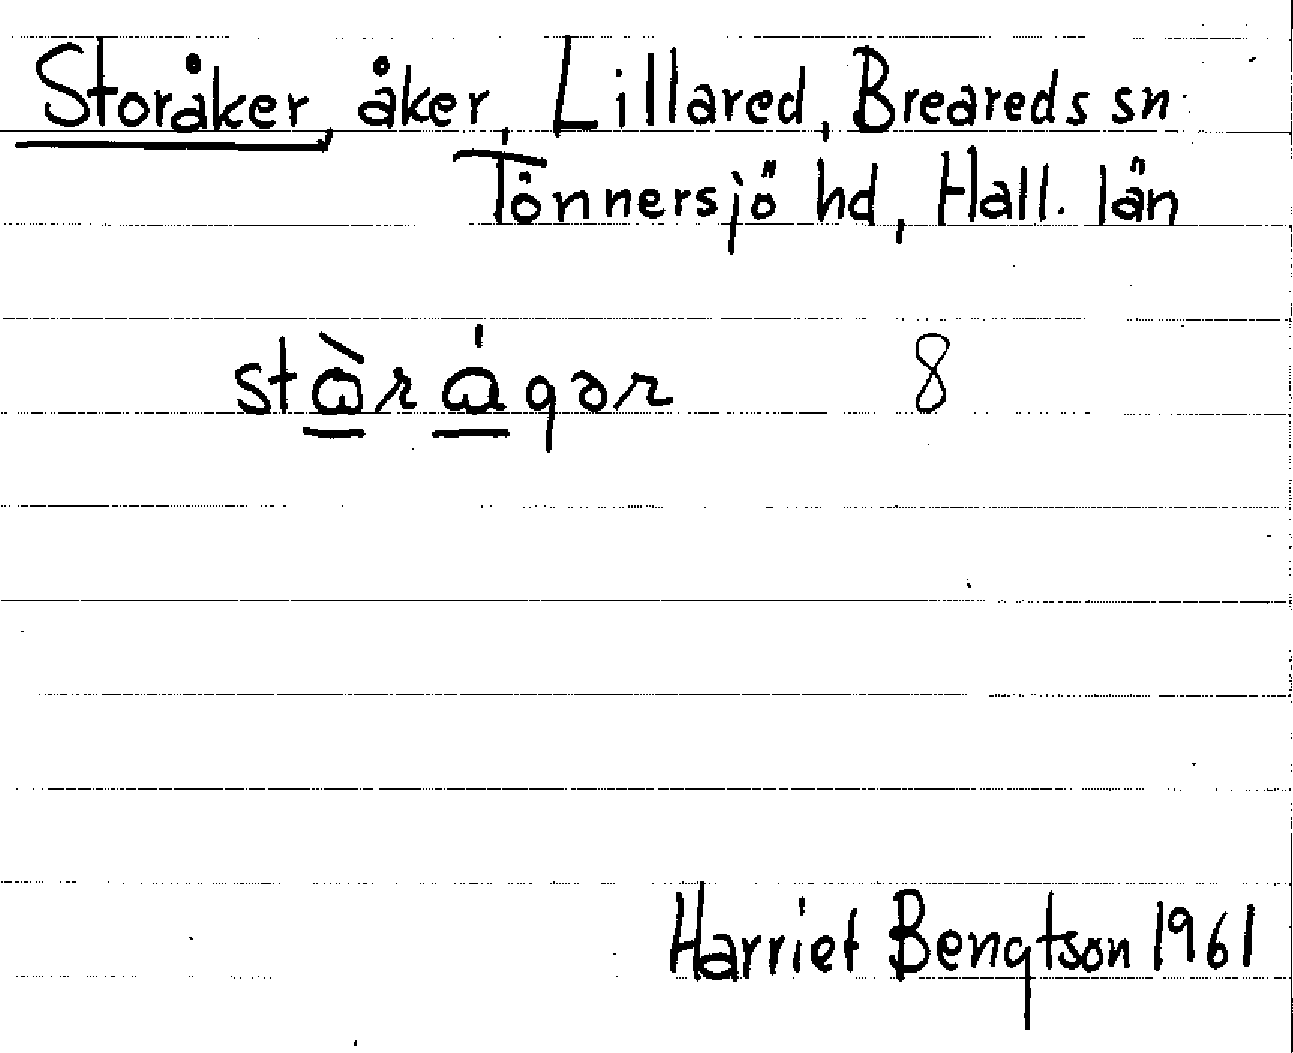 Storåker, åker, Lillared, Breareds sn
Tönnersjö hd, Hall. län
stɷ̀rɷ́gər 8
Harriet Bengtson 1961